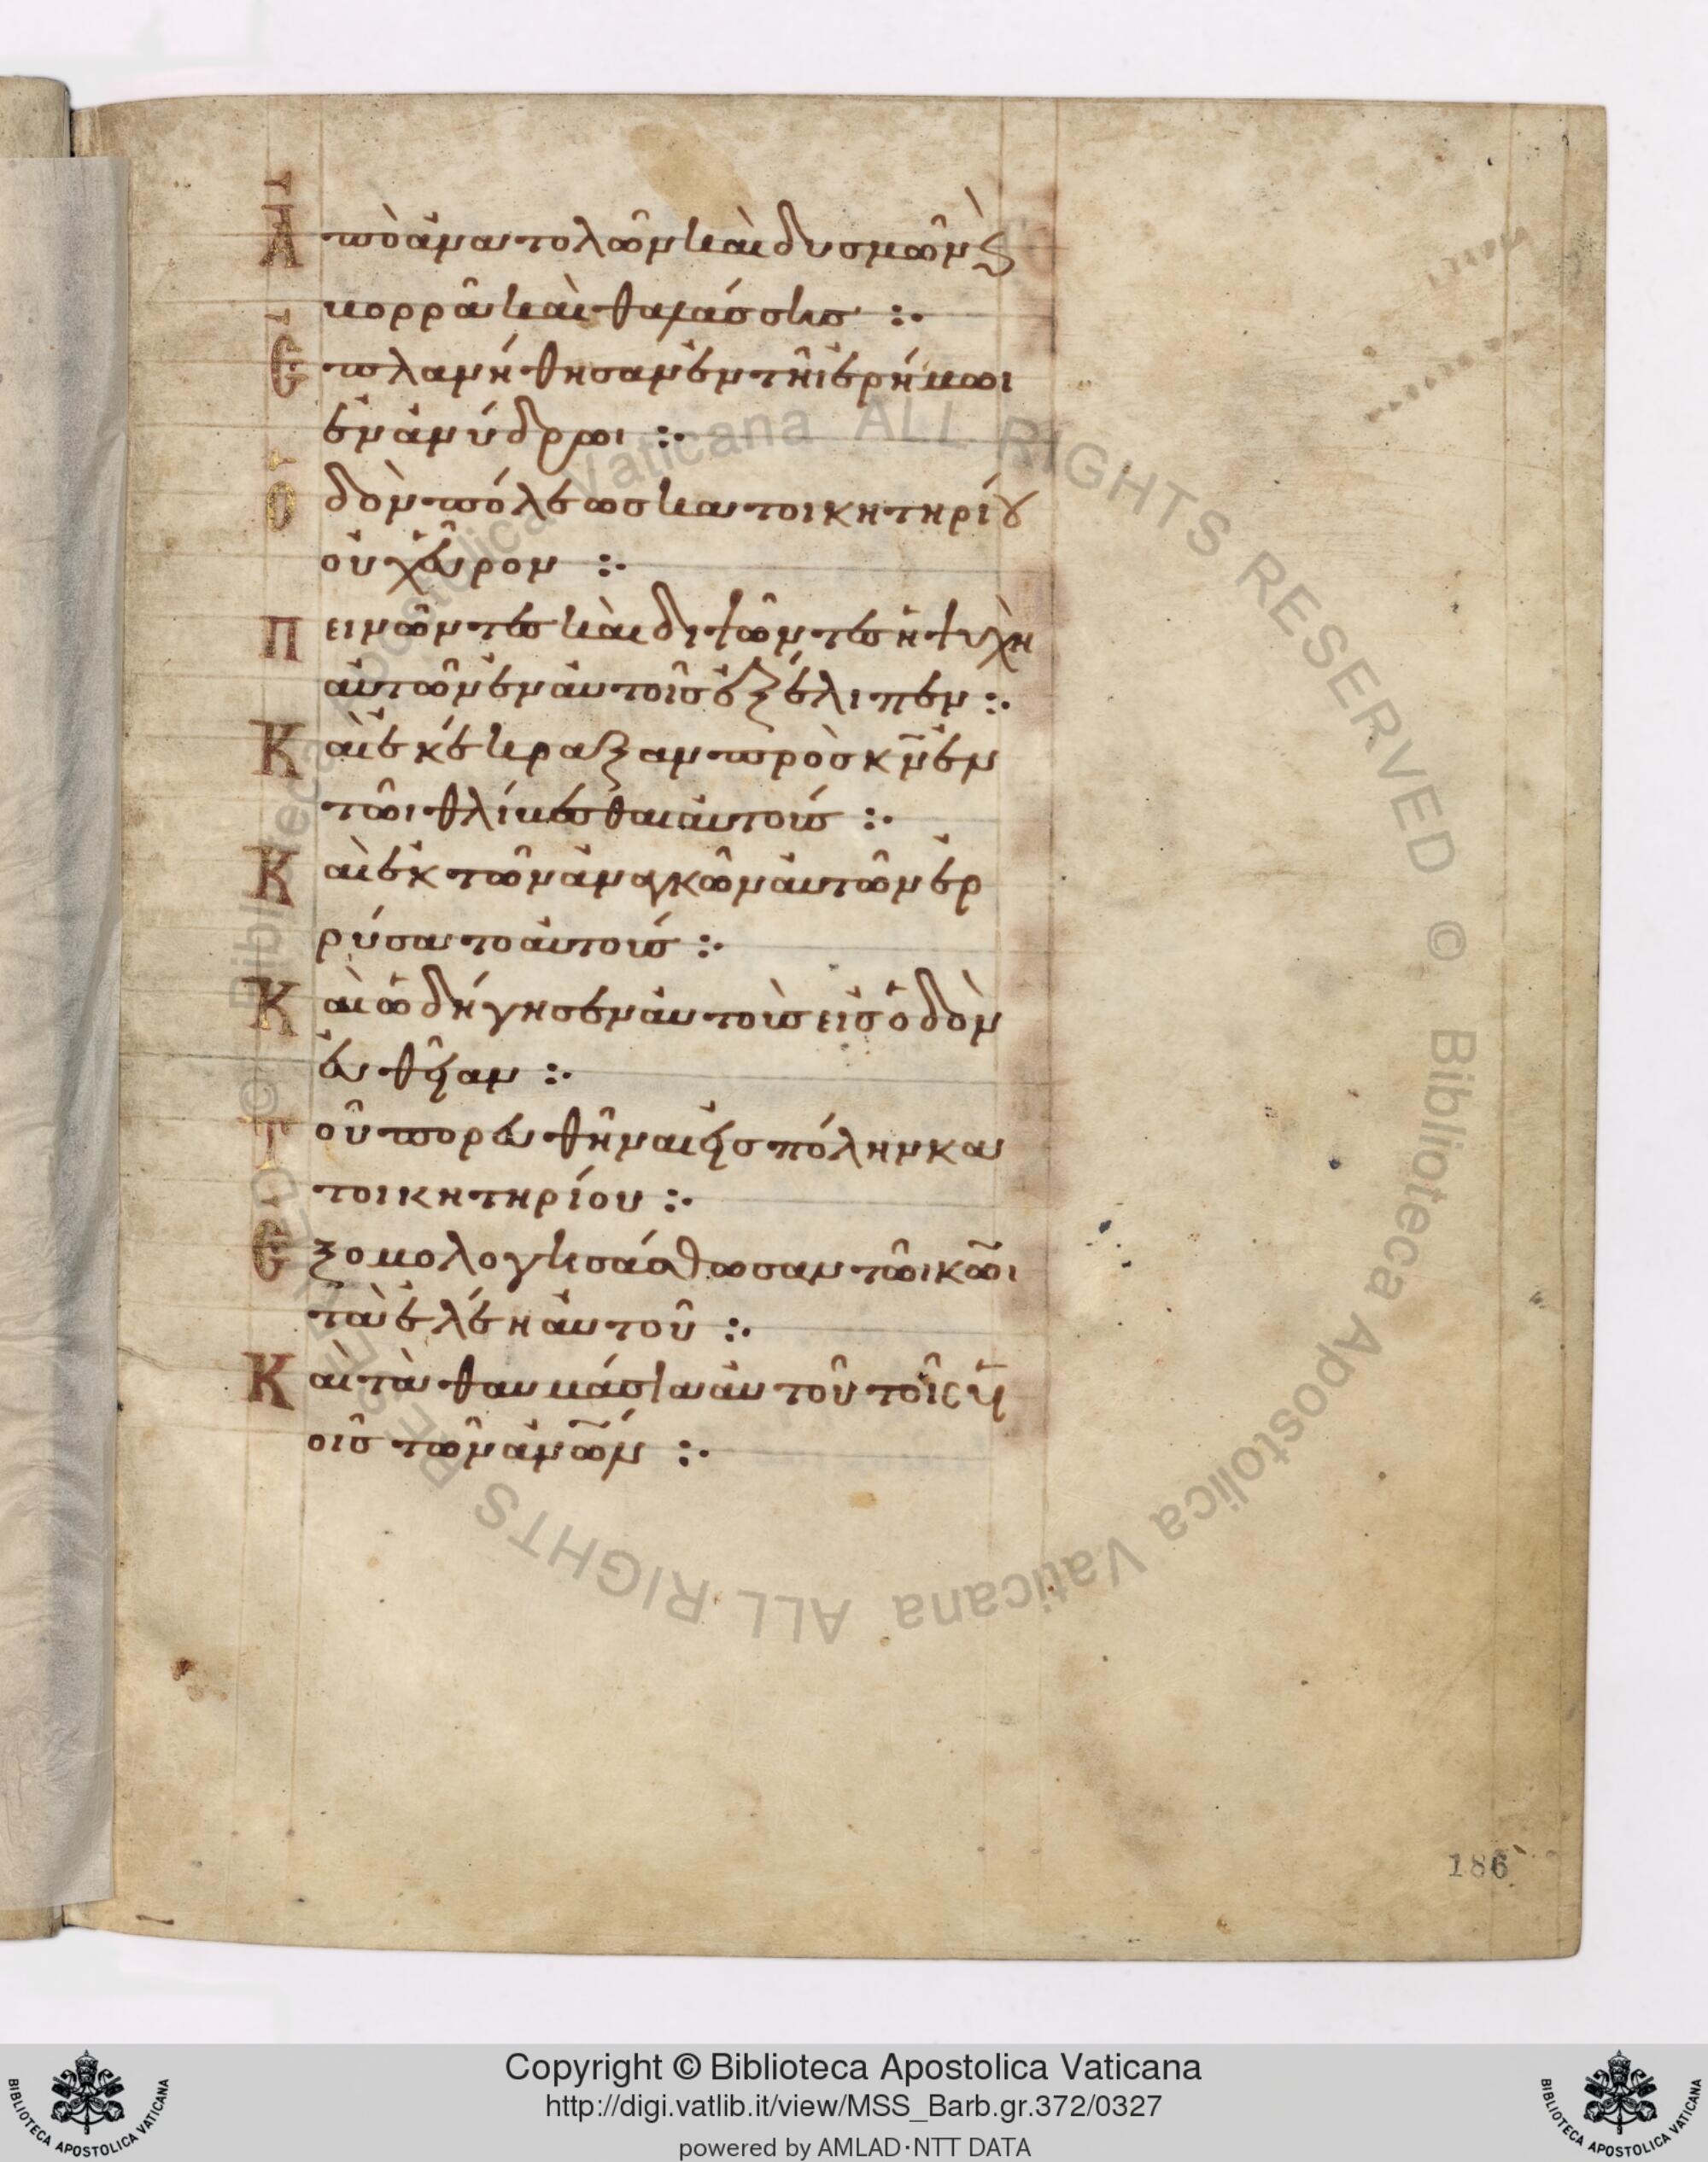 Ἀπὸ ἀνατολῶν καὶ δυσμῶν ϗ
βορρᾶ καὶ θαλάσσης :·
Ἐπλανήθησαν ἐν τῆι ἐρήμωι
ἐν ἀνύδρωι :·
Ὁδὸν πόλεως κατοικητηρίου
οὐχ εὗρον :·
Πεινῶντες καὶ διψῶντες ἡ ψυχὴ
αὐτῶν ἐν αὐτοῖς ἐξέλιπεν :·
Καὶ ἐκέκραξαν πρὸς κν ἐν
τῶι θλίβεσθαι αὐτούς :·
Καὶ ἐκ τῶν ἀναγκῶν αὐτῶν ἐρ
ρύσατο αὐτούς :·
Καὶ ὡδήγησεν αὐτοὺς εἰς ὁδὸν
εὐθεῖαν :·
Τοῦ πορευθῆναι εἰς πόλην κα
τοικητηρίου :·
Ἐξομολογησάσθωσαν τῶι κωι
τὰ ἐλέη αὐτοῦ :·
Καὶ τὰ θαυμάσια αὐτοῦ τοῖς υἱ
οῖς τῶν ανων :·
186
Biblioteca Apostolica Vaticana ALL RIGHTS RESERVED © Biblioteca Apostolica Vaticana ALL RIGHTS RESERVED ©
Copyright © Biblioteca Apostolica Vaticana
http://digi.vatlib.it/view/MSS_Barb.gr.372/0327
powered by AMLAD·NTT DATA
BIBLIOTECA APOSTOLICA VATICANA
BIBLIOTECA APOSTOLICA VATICANA